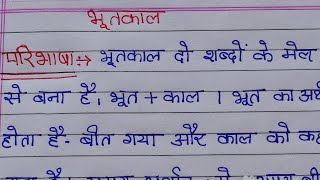 भूतकाल
परिभाषा:→ भूतकाल दो शब्दों के मेल
से बना है, भूत + काल । भूत का अर्थ
होता है- बीत गया और काल को कह